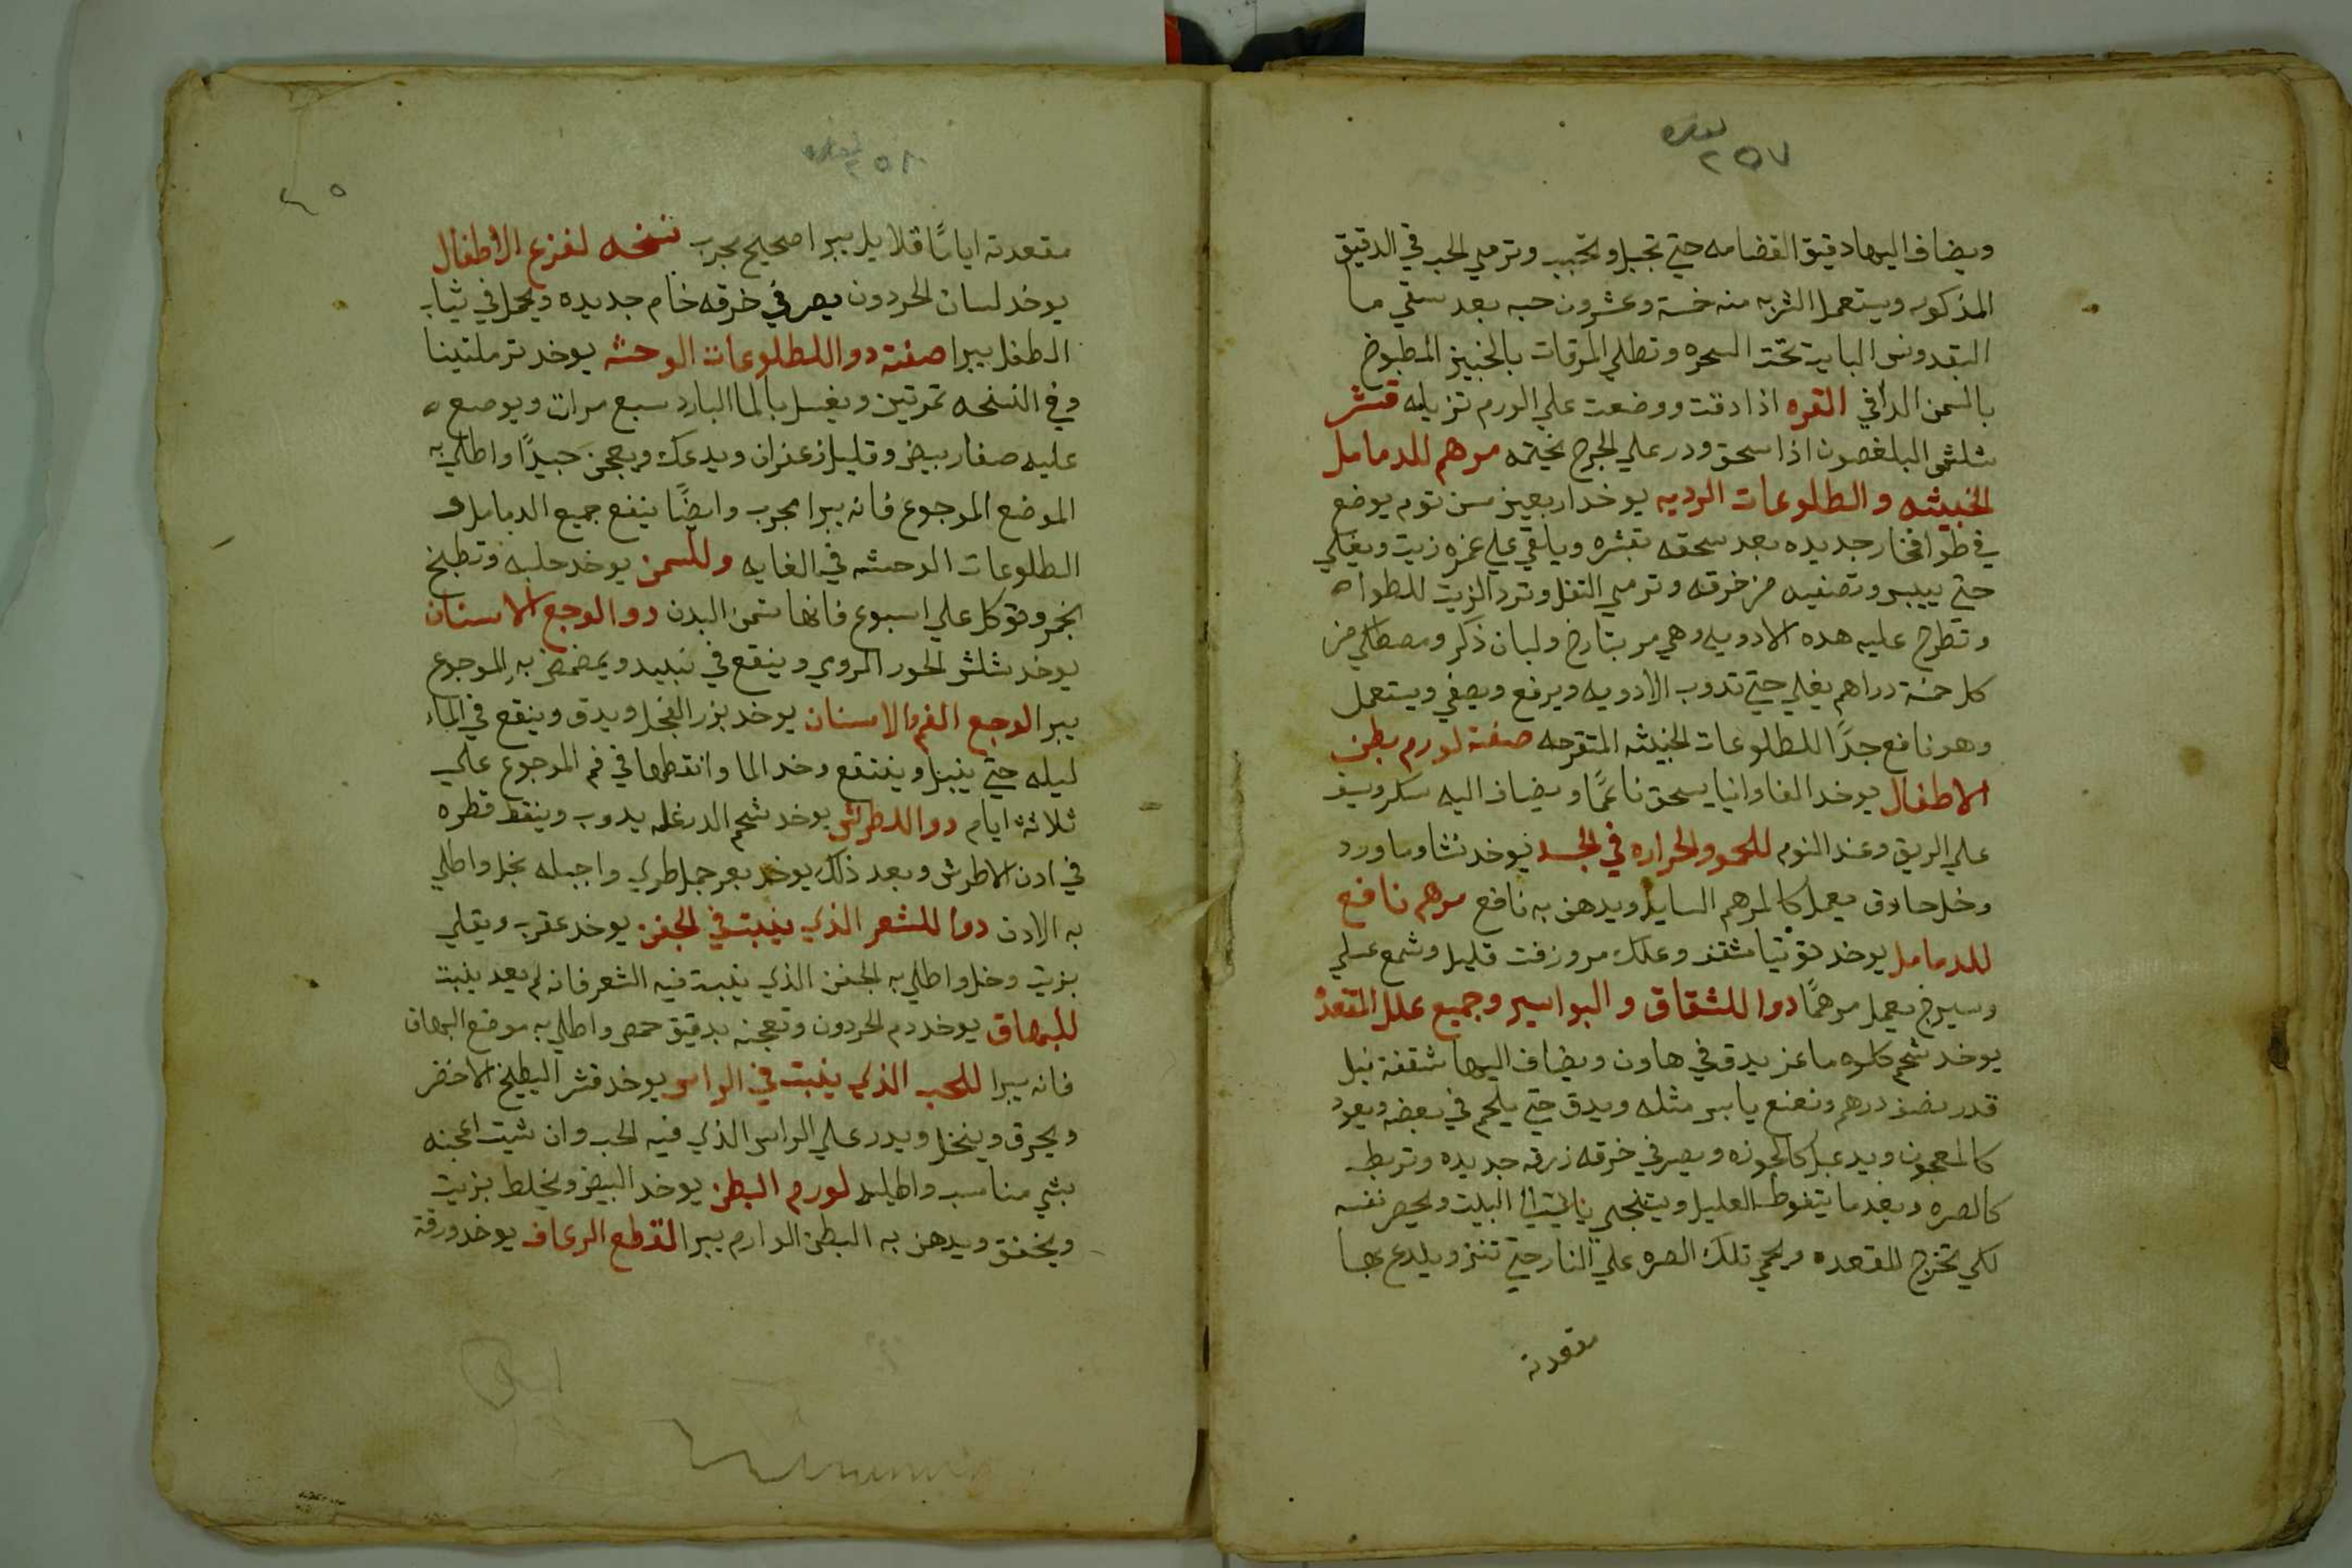 ٢٥٧
ويضاف اليها دقيق القضامه حتي تجبل وتحبب وترمي الحب في الدقيق
المذكور ويستعمل الشربه منه خمسة وعشرون حبه بعد سقي ما
البقدونس البايت تحت السحره وتطلي المرقات بالخبيز المطبوخ
بالسمن الدافي القره اذا دقت ووضعت علي الورم تزيله قشر
شلش اذا سحق ودر علي الجرح يختمه مرهم للدمامل
الخبيثه والطلوعات الرديه يوخد اربعين سن توم يوضع
في طوا فخار جديده بعد سحقه بقشره ويلقي علي غمره زيت ويغلي
حتي ييبس وتصفيه من خرقه وترمي التفل وترد الزيت للطواه
وتطرح عليه هده الادويه وهي مر بتارخ ولبان ذكر ومصطكي من
كل خمسة دراهم يغلي حتي تدوب الادويه ويرفع ويصفي ويستعمل
وهو نافع جدًا للطلوعات الخبيثه المتقرحه صفة لورم بطن
الاطفال يوخد الفاوانيا يسحق ناعمًا ويضاف اليه سكر ويسف
علي الريق وعند النوم للحمو والحراره في الجسد يوخد نشا وماورد
وخل حادق يعمل كالمرهم السايل ويدهن به نافع مرهم نافع
للدمامل يوخد توتيا مثقف وعلك مر وزفت قليل وشمع عسلي
وسيرج يعمل مرهمًا دوا للشقاق والبواسير وجميع علل المقعدة
يوخد شحم كلوه ماعز يدق في هاون ويضاف اليها شقفة نيل
قدر نصف درهم ونعنع يابس مثله ويدق حتي يلحم في بعضه ويعود
كالمعجون ويدعبل كالجوزه ويصر في خرقه زرقه جديده وتربط
كالصره وبعد ما يتغوط العليل ويتنجي البيت ويحصر نفسه
لكي تخرج المقعده ويحمي تلك الصره علي النار حتي تنز ويلدع بها
مقعدته
٢٥٨
مقعدته ايامًا قلايل يبرا صحيح مجرب نسخه لفزع الاطفال
يوخد لسان الحردون يصر في خرقه خام جديده ويحمل في ثياب
الطفل يبرا صفة دوا للطلوعات الوحشه يوخد ترملتينا
وفي النسخه تمرتين ويغسل بالما البارد سبع مرات ويوضع
عليه صفار بيض وقليل زعفران ويدعك ويعجن جيدًا واطلي به
الموضع الموجوع فانه يبرا مجرب وايضًا ينفع جميع الدمامل و
الطلوعات الوحشه في الغايه وللسمن يوخد حلبه وتطبخ
بخمر وتوكل علي اسبوع فانها تسمن البدن دوا لوجع الاسنان
يوخد شلش الحور الروي وينقع في نبيد ويمضمض به الموجوع
يبرا لوجع الفم والاسنان يوخد بزر الفجل ويدق وينقع في الماء
ليله حتي ينبل وينتقع وخد الما وانقطها في فم الموجوع علي
ثلاثة ايام دوا للطرش يوخد شحم الدرغله يدوب وينقط قطره
في ادن الاطرش وبعد ذلك يوخد بعر جمل طري واجبله بخل واطلي
به الادن دوا للشعر الذي ينبت في الجفن يوخد عقرب ويقلي
بزيت وخل واطلي به الجفن الذي ينبت فيه الشعر فانه لم يعد ينبت
للبهاق يوخد دم الحردون وتعجنه بدقيق حمص واطلي به موضع البهاق
فانه يبرا للحب الذي ينبت في الراس يوخد قشر البطيخ الاخضر
ويحرق وينخل ويدر علي الراس الذي فيه الحب وان شيت اعجنه
بشي مناسب واطليه لورم البطن يوخد البيض ويخلط بزيت
ويخفق ويدهن به البطن الوارم يبرا لقطع الرعاف يوخد ورقة